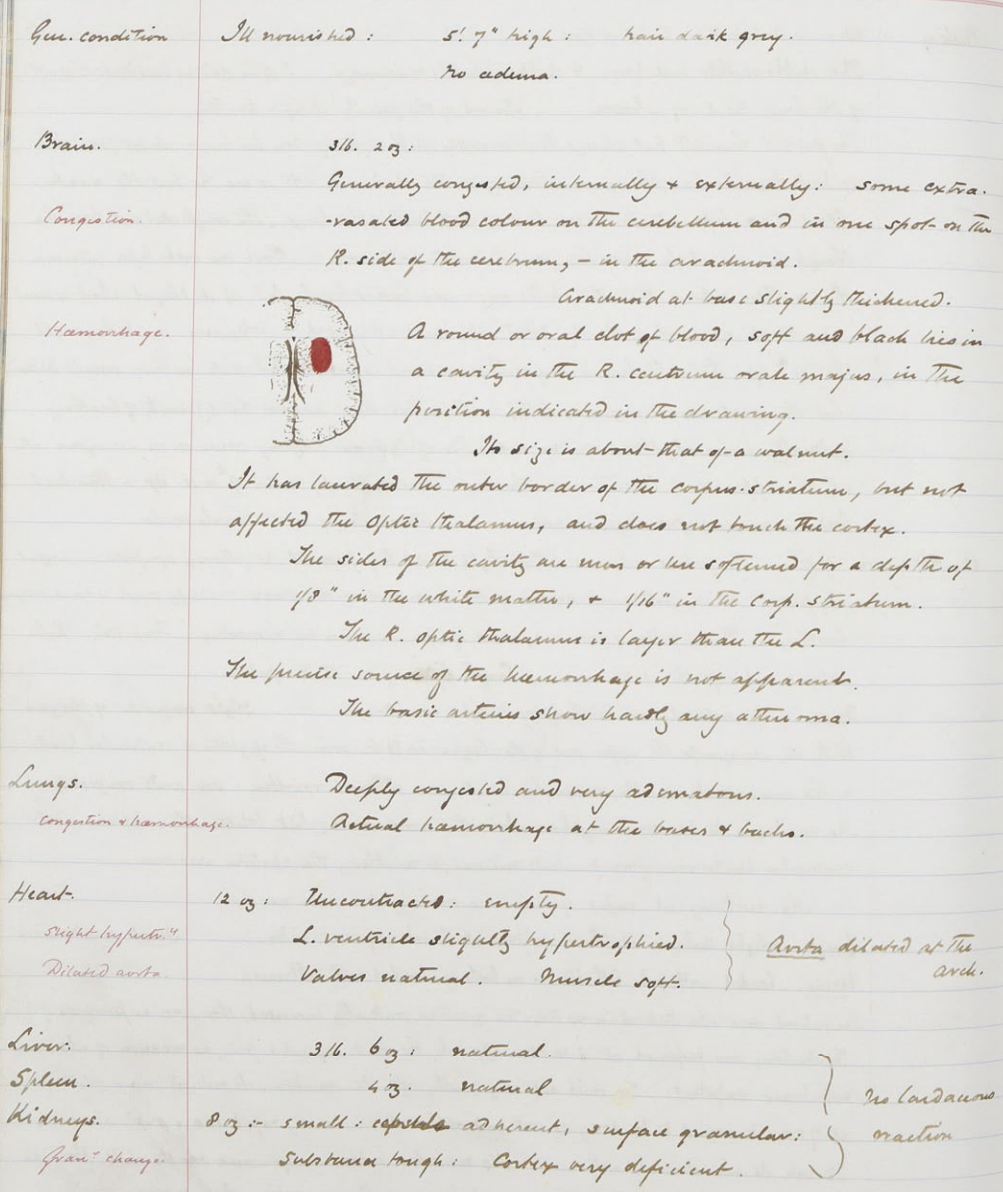 Gen. condition Ill nourished : 5'. 7" high : hair dark grey.
No œdema.
Brain. 3lb. 2oz :
Generally congested, internally & externally : some extra-
Congestion. -vasated blood colour on the cerebellum and in one spot on the
R. side of the cerebrum, – in the arachnoid.
Arachnoid at base slightly thickened.
Hæmorrhage. A round or oval clot of blood, soft and black lies in
a cavity in the R. centrum ovale majus, in the
position indicated in the drawing.
Its size is about that of a walnut.
It has lacerated the outer border of the corpus striatum, but not
affected the optic thalamus, and does not touch the cortex.
The sides of the cavity are more or less softened for a depth of
1/8" in the white matter, & 1/16" in the corp. striatum.
The R. optic thalamus is larger than the L.
The precise source of the hæmorrhage is not apparent.
The basic arteries show hardly any atheroma.
Lungs. Deeply congested and very œdematous.
congestion & hæmorrhage. Actual hæmorrhage at the bases & backs.
Heart. 12 oz : Uncontracted : empty.
slight hypertr.y L. ventricle slightly hypertrophied. Aorta dilated at the
Dilated aorta Valves natural. Muscle soft. arch.
Liver. 3 lb. 6 oz : natural.
Spleen. 4 oz. natural No lardaceous
Kidneys. 8 oz :- small : capsule adherent, surface granular : reaction
Gran.r change. Substance tough : Cortex very deficient.